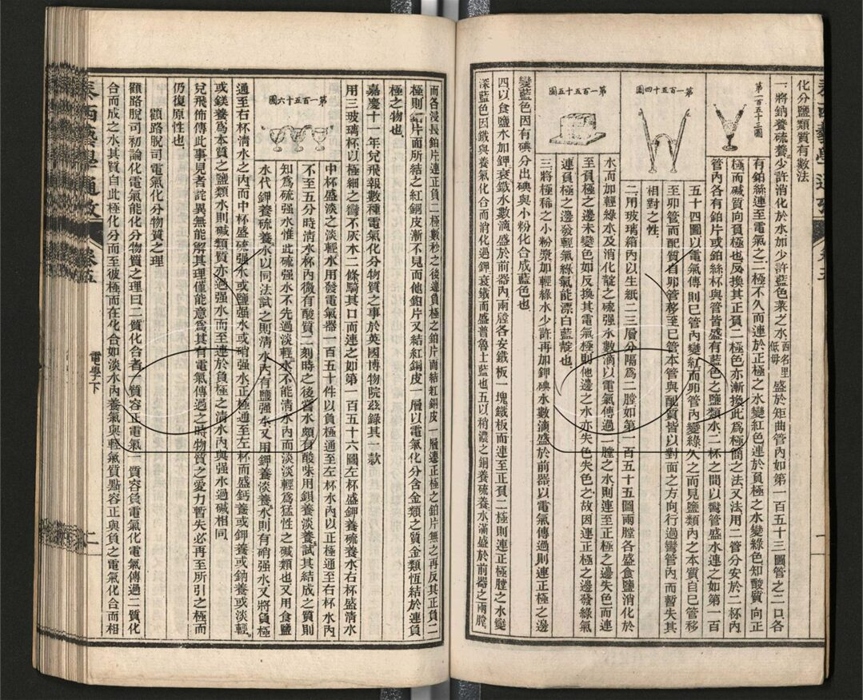 泰西藝學通攷 卷五
化分鹽類質有數法
一將鈉養硫養少許消化於水加少許藍色菜之水百名里低母盛於矩曲管內如第一百五十三圖管之二口各
有鉑絲連至電氣之二極不久而連於正極之水變紅色連於負極之水變綠色知酸質向正
極而鹹質向負極也反換其正負二極色亦漸換此為極簡之法又法用二管分安於二杯內
管內各有鉑片或鉑絲杯與管皆盛有藍色之鹽類水二杯之間以彎管盛水連之如第一百
五十四圖以電氣傳則已管內變紅而卯管內變綠久之而見鹽類內之本質自已管移
至卯管而配質自卯管移至已管本管與配質皆以對面之方向行過彎管內而暫失其
相對之性
二用玻璃箱內以生紙二三層分隔為二膛如第一百五十五圖兩膛各盛食鹽消化於
水而加輕綠水及消化靛之硫强水數滴以電氣傳過一膛之水則連至正極之邊失色而連
至負極之邊未變色如反換其電氣極則他邊之水亦失色失色之故因連正極之邊發綠氣
連負極之邊發輕氣綠氣能漂白藍靛也
三將極稀之小粉漿加輕綠水少許再加鉀碘水數滴盛於前器以電氣傳過則連正極之邊
變藍色因有碘分出碘與小粉化合成藍色也
四以食鹽水加鉀衰鐵水數滴盛於前器內兩膛各安鐵板一塊鐵板而連至正負二極則連正極膛之水變
深藍色因鐵與養氣化合而消化過鉀衰鐵而盛普魯士藍也五以稍濃之銅養硫養水滿盛於前器之兩膛
第一百五十三圖
第一百五十四圖
第一百五十五圖
而各浸長鉑片連正負二極數秒之後連負極之鉑片面結紅銅皮一層連正極之鉑片無之再反其正負二
極則鉑片面所結之紅銅皮漸不見而他鉑片又結紅銅皮一層以電氣化分含金類之質金類恆結於連負
極之物也
嘉慶十一年兒飛報數種電氣化分物質之事於英國博物院茲錄其一款
用三玻璃杯以極細之不灰木二條騎其口而連之如第一百五十六圖左杯盛鉀養硫養水右杯盛清水
中杯盛淡之淡輕水用發電氣器一百五十件以負極通至左杯水內以正極通至右杯水內
不至五分時清水杯內微有酸質二刻時之後嘗水頗有酸味用鋇養淡養試其結成之質則
知為硫强水惟此硫强水不先過淡輕水不能清水內而淡淡輕為猛性之鹹類也又用食鹽
水代鉀養硫養水以同法試之則清水內有鹽强水又用鉀養淡養水則有硝强水又將負極
通至右杯清水之內而中杯盛硫强水或鹽强水或硝强水正極通至左杯而盛鈣養或鉀養或鈉養或淡輕
或鎂養為本質之鹽類水則鹹類質亦過强水而至連於負極之清水內與强水過鹹相同
兒飛佈傳此事見者詫異無能解其理僅能意為其有電氣傳過之時物質之愛力暫失必再至所引之極而
仍復原性也
顴路脫司電氣化分物質之理
顴路脫司初論化電氣能化分物質之理曰二質化合者一質容正電氣一質容負電氣化電氣傳過二質化
合而成之水其質自此極化分而至彼極而在化合如淡水內養氣與輕氣質點容正與負之電氣化合而相
第一百五十六圖
泰西藝學通攷 卷五 電學下 二